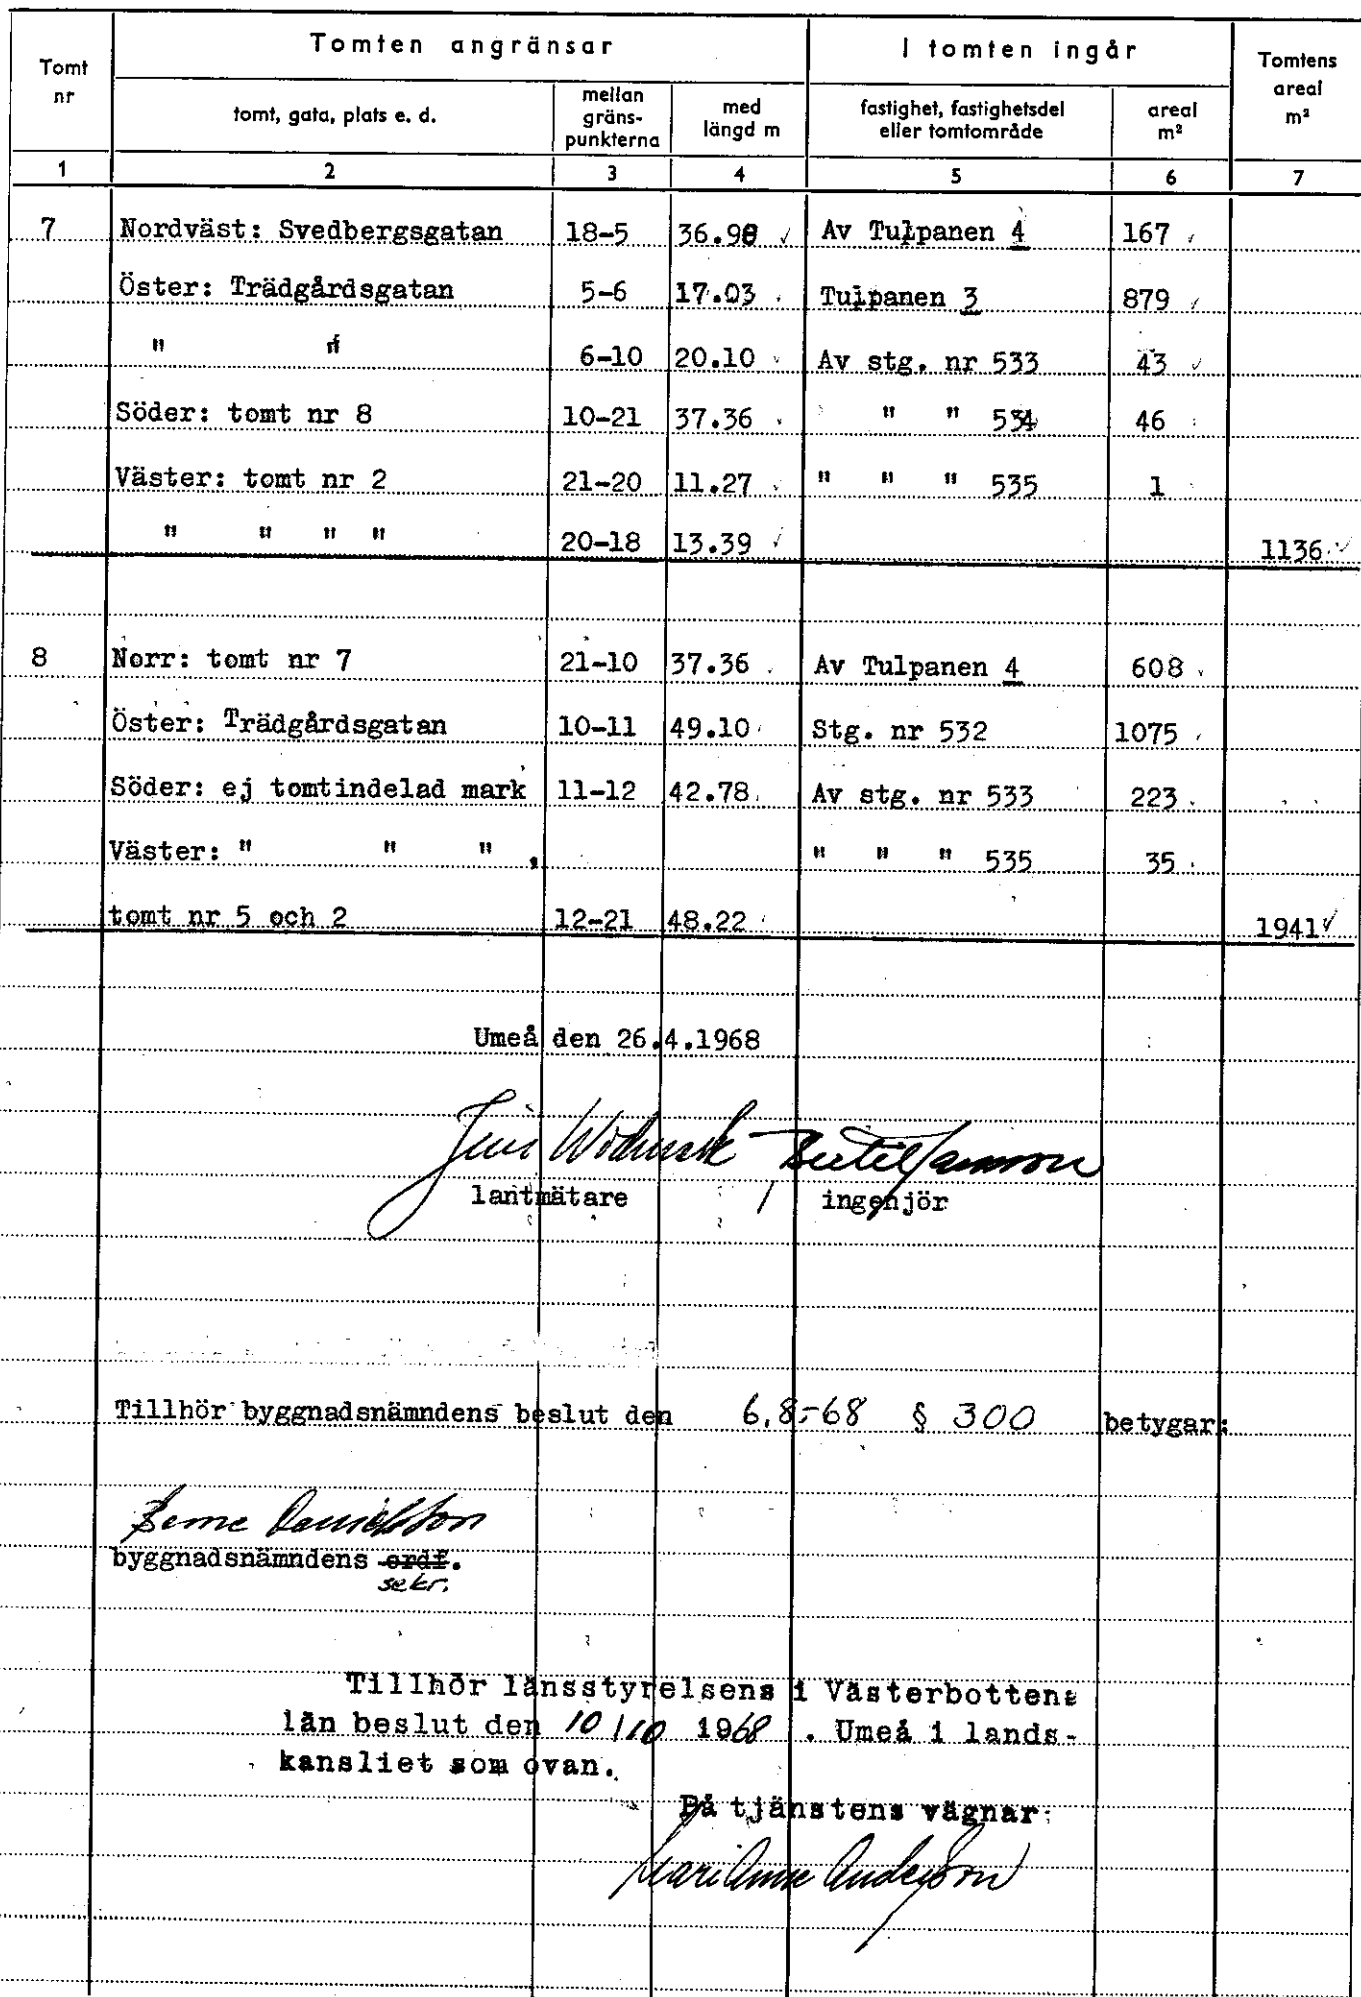 Tomt nr Tomten angränsar I tomten ingår Tomtens areal m²
tomt, gata, plats e. d. mellan gräns-punkterna med längd m fastighet, fastighetsdel eller tomtområde areal m²
1 2 3 4 5 6 7
7 Nordväst: Svedbergsgatan 18-5 36.98 Av Tulpanen 4 167
Öster: Trädgårdsgatan 5-6 17.03 Tulpanen 3 879
" " 6-10 20.10 Av stg. nr 533 43
Söder: tomt nr 8 10-21 37.36 " " 534 46
Väster: tomt nr 2 21-20 11.27 " " " 535 1
" " " " 20-18 13.39 1136
8 Norr: tomt nr 7 21-10 37.36 Av Tulpanen 4 608
Öster: Trädgårdsgatan 10-11 49.10 Stg. nr 532 1075
Söder: ej tomtindelad mark 11-12 42.78 Av stg. nr 533 223
Väster: " " " , " " " 535 35
tomt nr 5 och 2 12-21 48.22 1941
Umeå den 26.4.1968
Bertil
lantmätare ingenjör
Tillhör byggnadsnämndens beslut den 6.8.-68 § 300 betygar:
Berne Danielsson
byggnadsnämndens ordf.
sekr.
Tillhör länsstyrelsens i Västerbottens
län beslut den 10/10 1968 . Umeå i lands-
kansliet som ovan.
På tjänstens vägnar:
Mari Anne Andersson